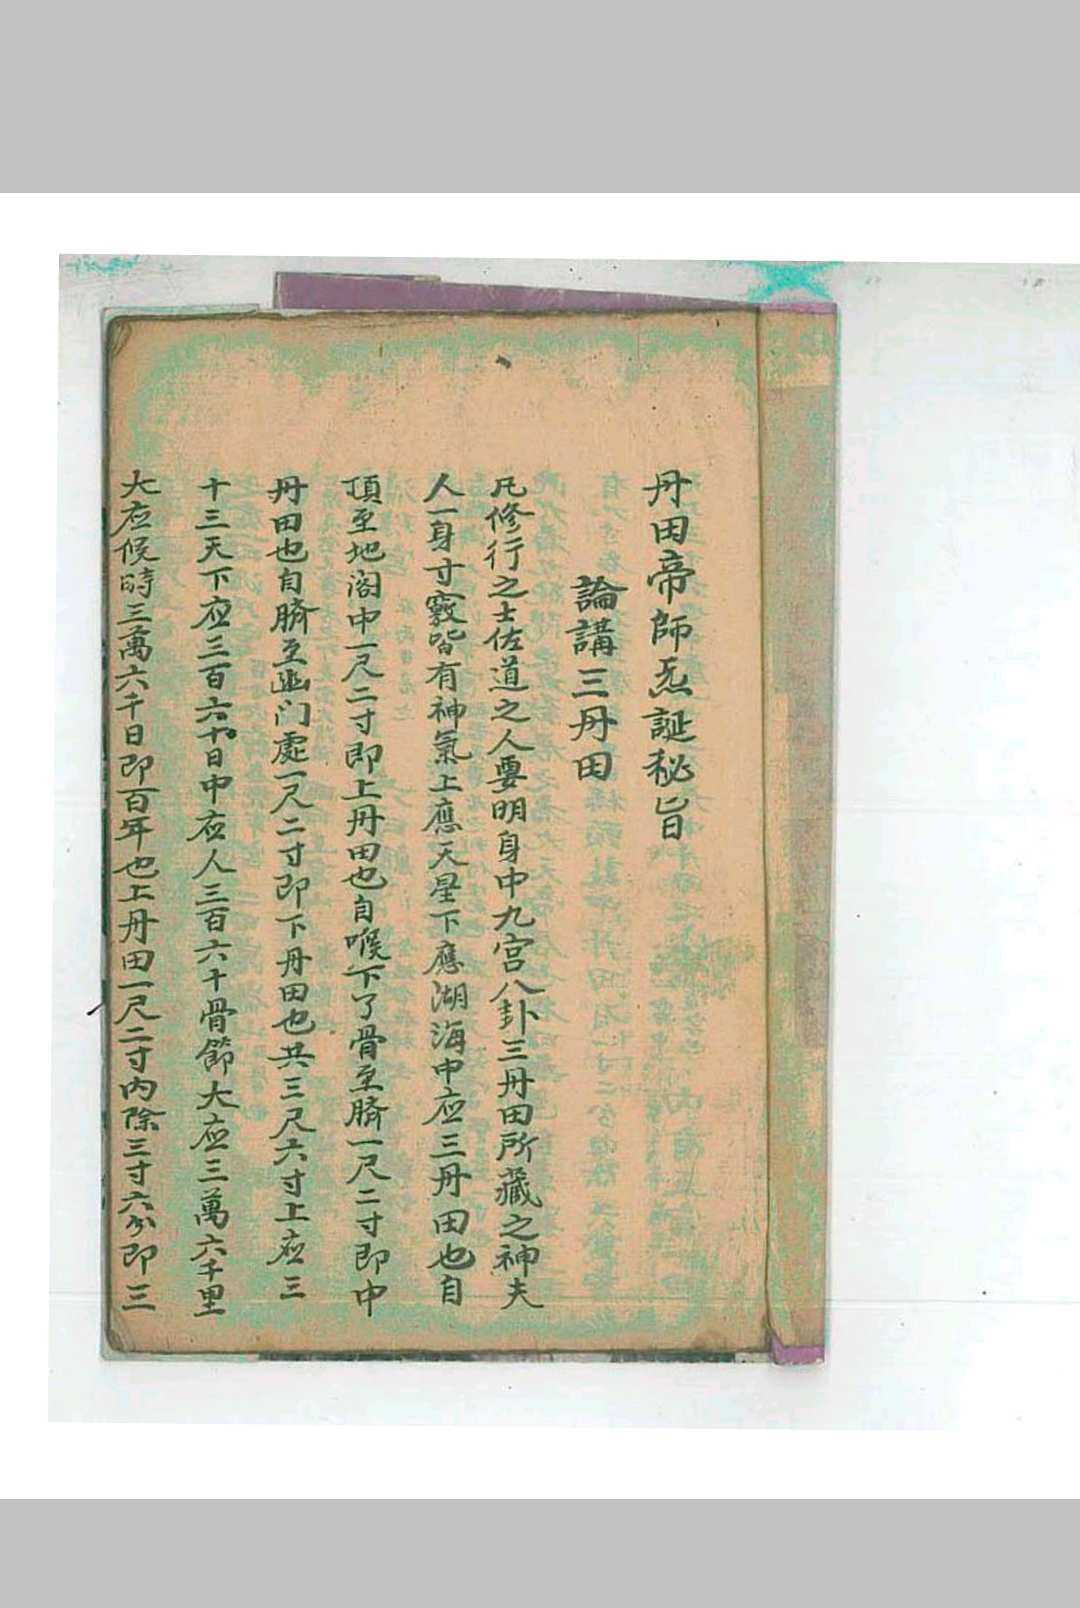 丹田帝師炁誕秘旨
論講三丹田
凡修行之士佐道之人要明身中九宮八卦三丹田所藏之神夫
人一身寸竅皆有神氣上應天星下應湖海中应三丹田也自
頂至地阁中一尺二寸即上丹田也自喉下了骨至臍一尺二寸即中
丹田也自臍至幽门處一尺二寸即下丹田也共三尺六寸上应三
十三天下应三百六十日中应人三百六十骨節大应三萬六千里
大应候時三萬六千日即百年也上丹田一尺二寸内除三寸六分即三